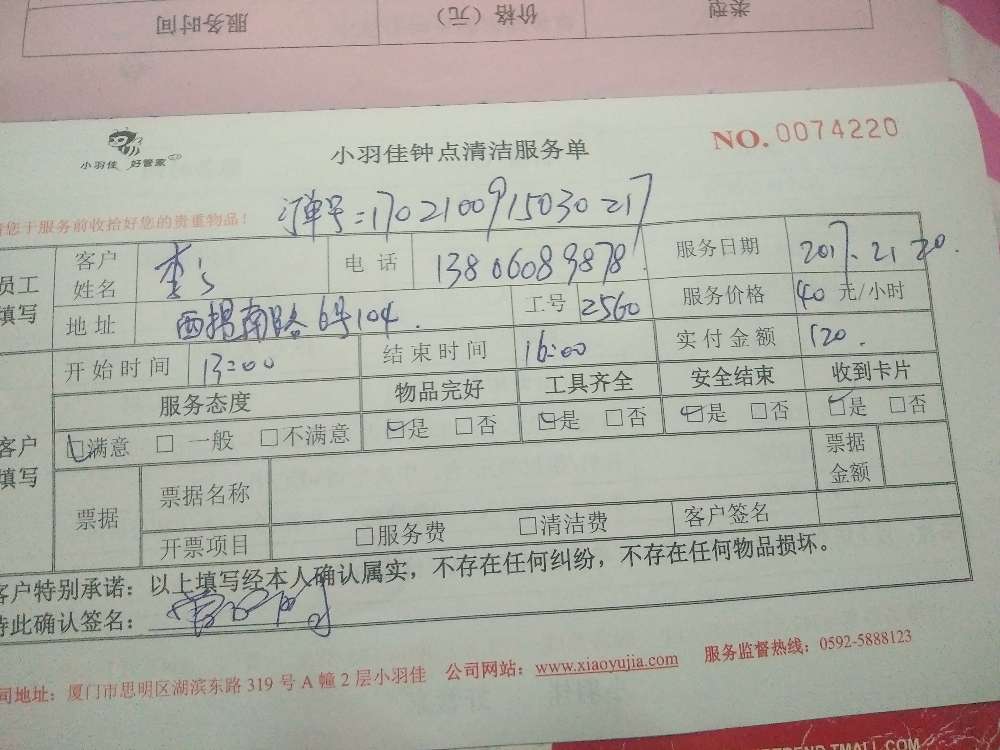 服务时间 价格（元） 类型
小羽佳 好管家
小羽佳钟点清洁服务单
NO.0074220
订单号=1702100915030217
请您于服务前收拾好您的贵重物品！
员工填写
客户姓名 李 电话 13806089878 服务日期 2017.2.20.
地址 西堤南路6号104. 工号 2560 服务价格 40 元/小时
开始时间 13:00 结束时间 16:00 实付金额 120.
服务态度 物品完好 工具齐全 安全结束 收到卡片
客户填写
☑满意 □ 一般 □不满意 ☑是 □否 ☑是 □否 ☑是 □否 ☑是 □否
票据 票据名称 票据金额
开票项目 □服务费 □清洁费 客户签名
客户特别承诺：以上填写经本人确认属实，不存在任何纠纷，不存在任何物品损坏。
特此确认签名：
公司地址：厦门市思明区湖滨东路 319 号 A 幢 2 层小羽佳 公司网站：www.xiaoyujia.com 服务监督热线：0592-5888123
TMALL.COM